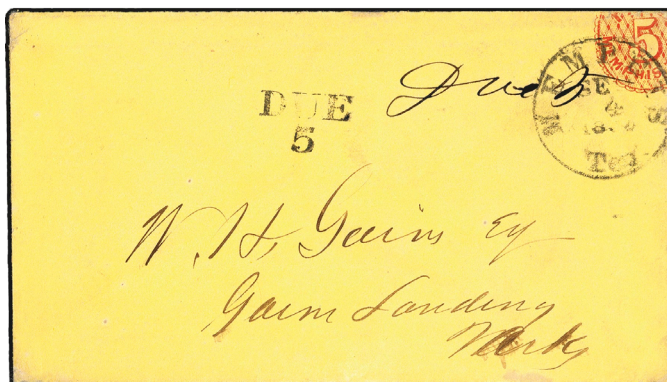 5
MEMPHIS
MEMPHIS
SE
4
Ten
Due 5
DUE
5
W. H. Gains Esq
Gains Landing
Arks